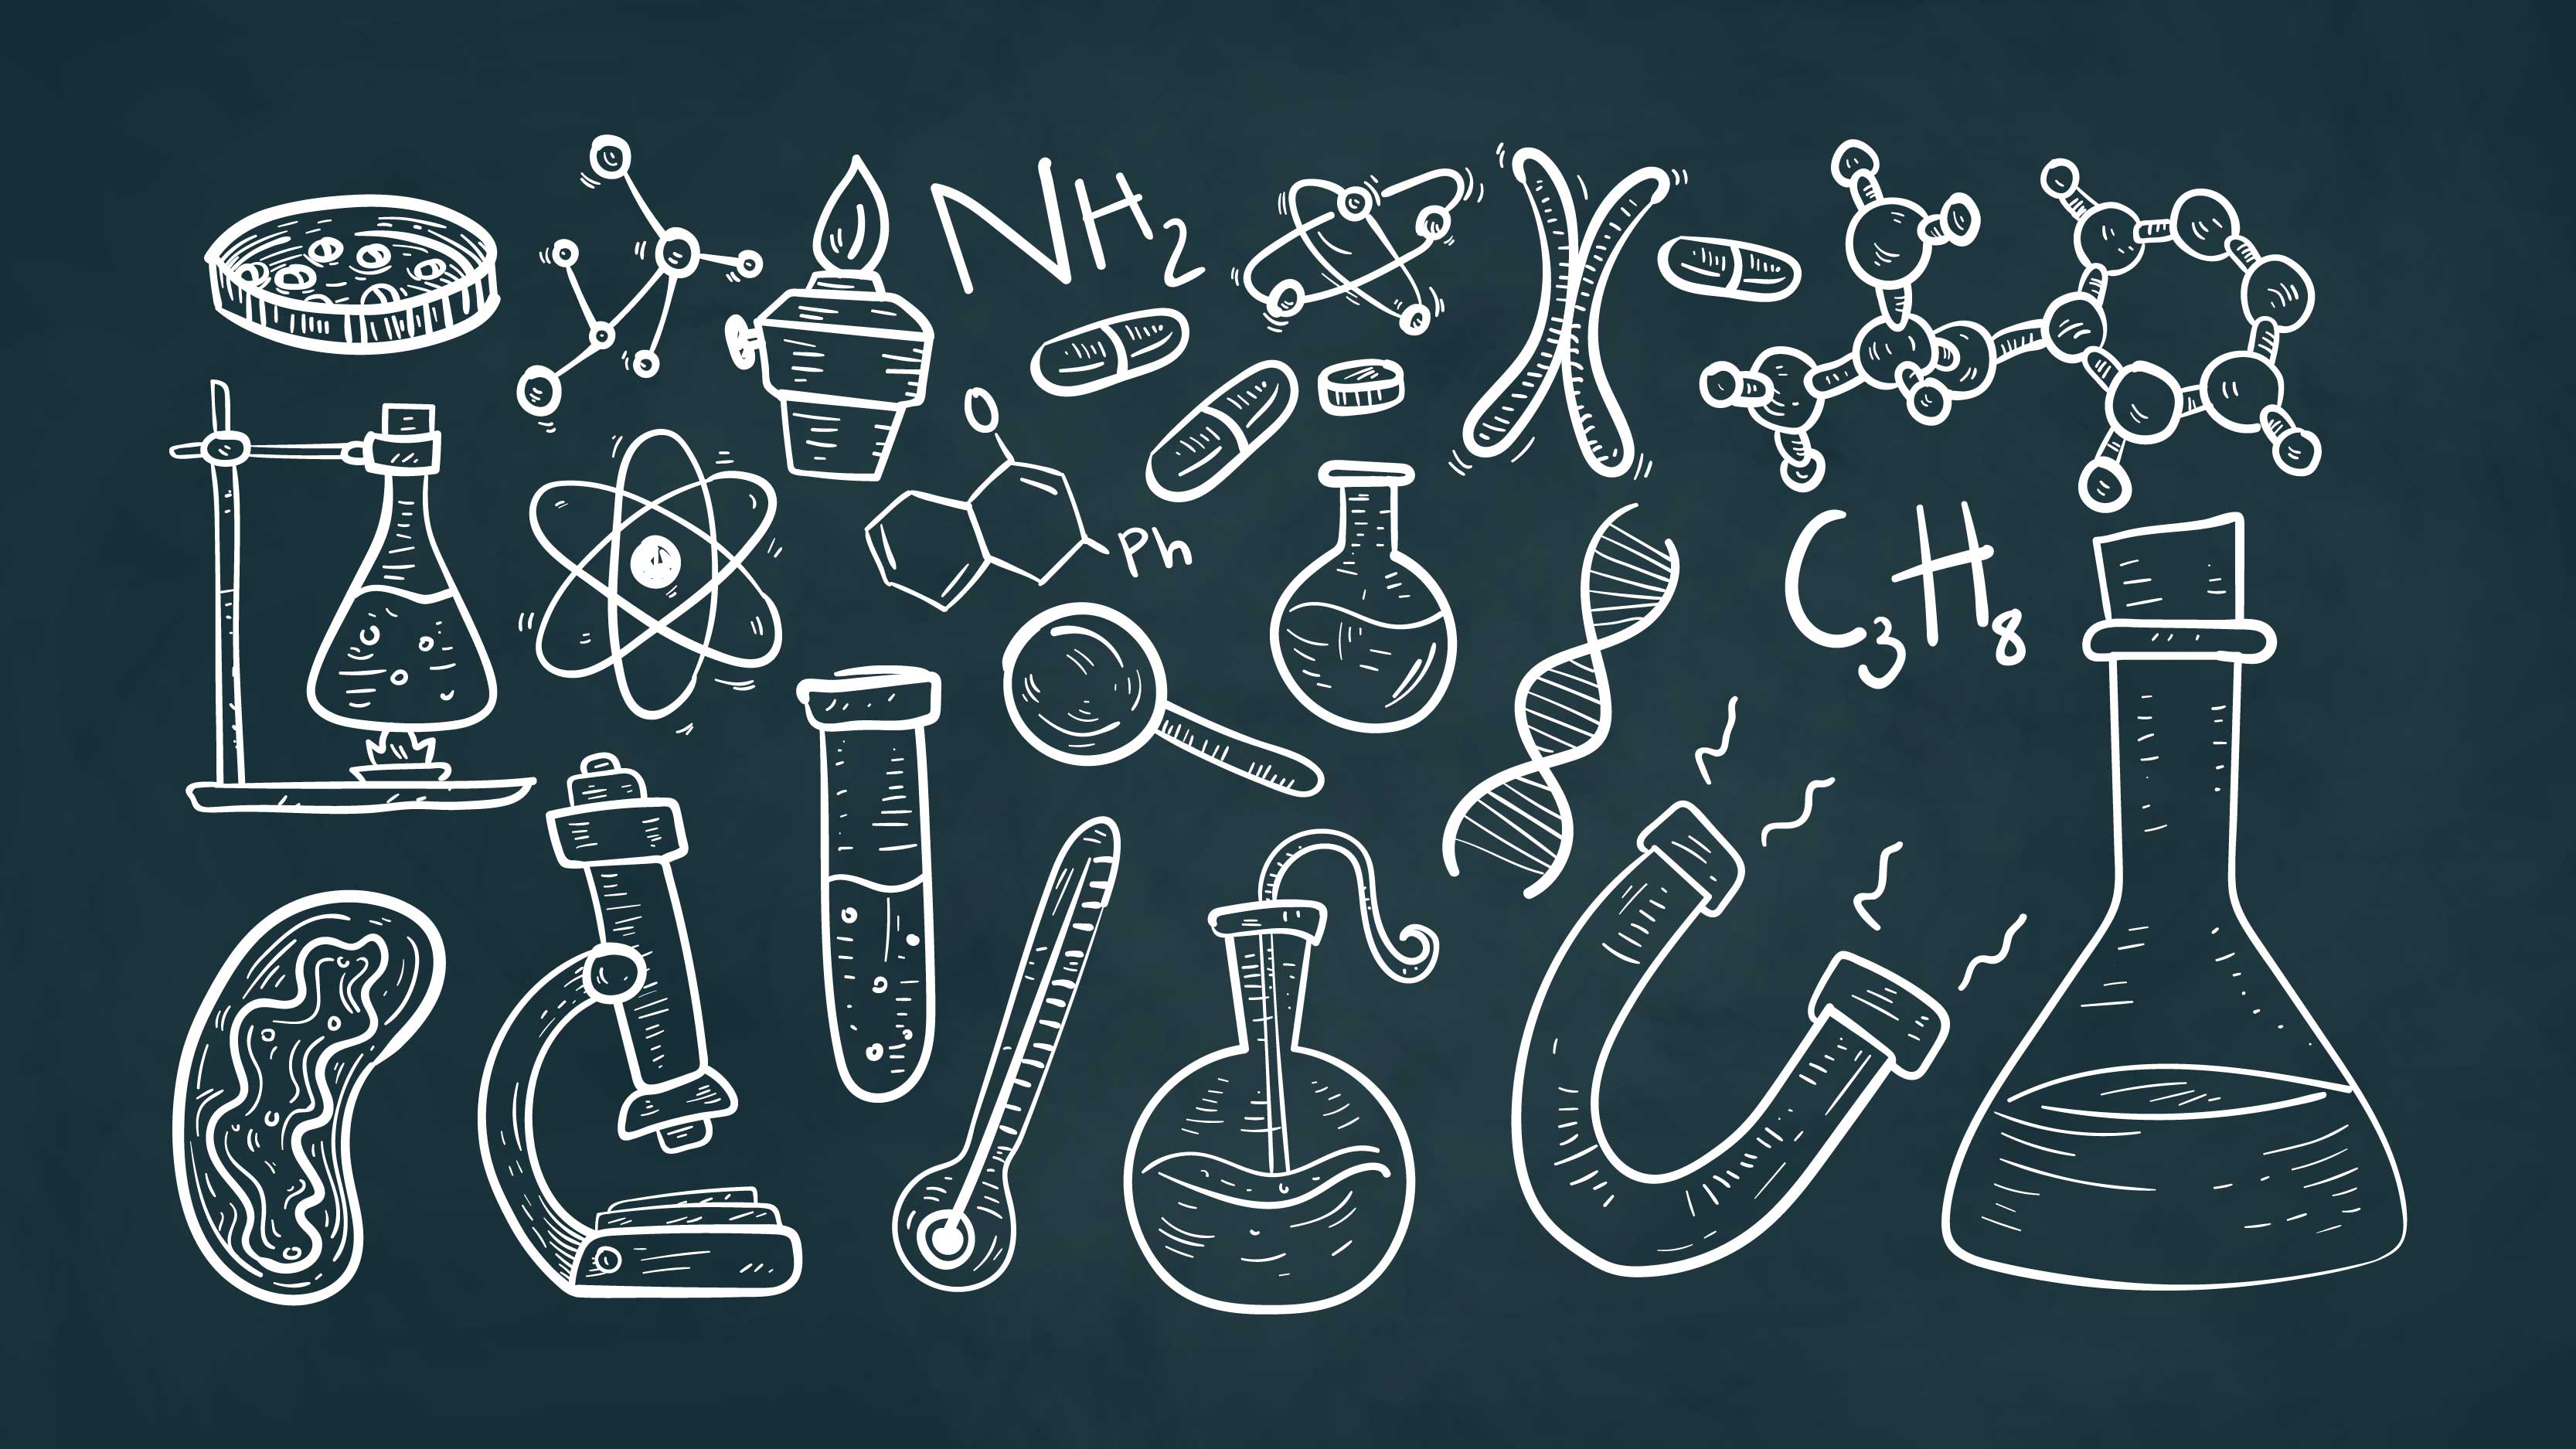 NH2
O
Ph
C3H8